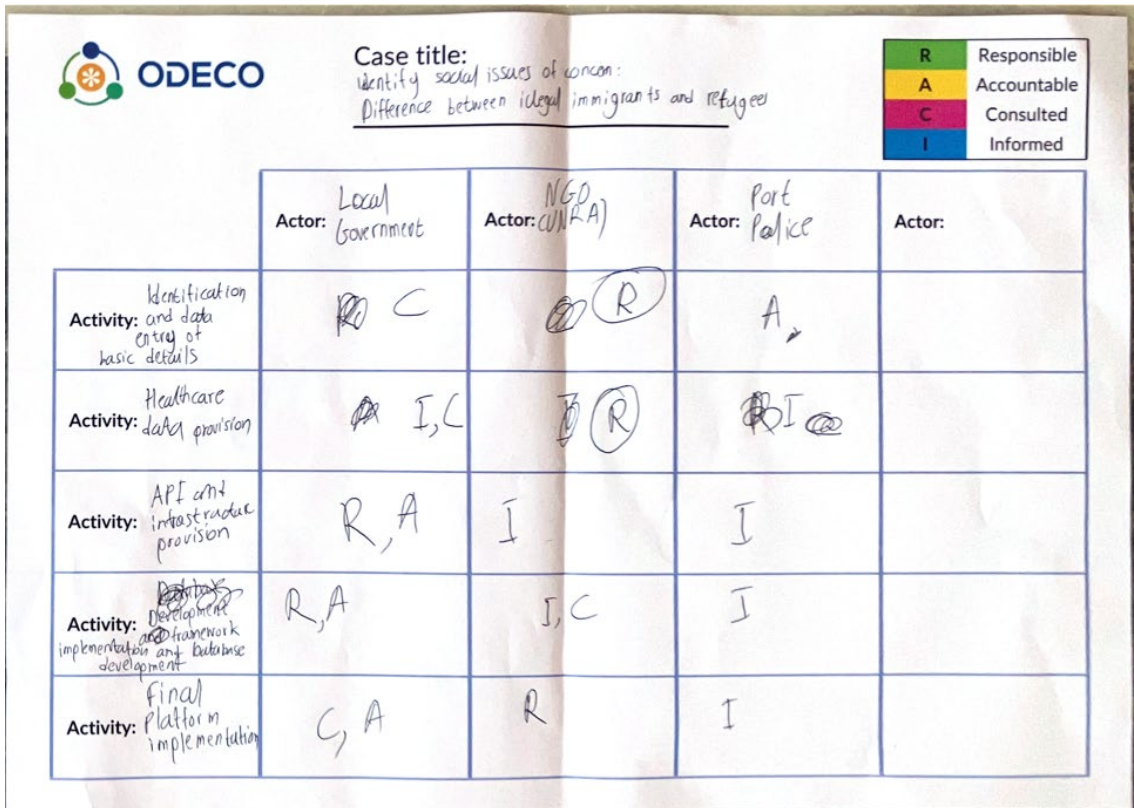 ODECO
Case title:
Identify social issues of concern:
Difference between illegal immigrants and refugees
R Responsible
A Accountable
C Consulted
I Informed
Actor: Local Government
Actor: NGO
Actor: Port Police
Actor:
Activity: Identification
and data
entry of
basic details
C
R
A
Activity: Healthcare
data provision
I, C
R
I
Activity: API and
infrastructure
provision
R, A
I
I
Activity: Development
framework
implementation and database
development
R, A
I, C
I
Activity: Final
Platform
implementation
C, A
R
I